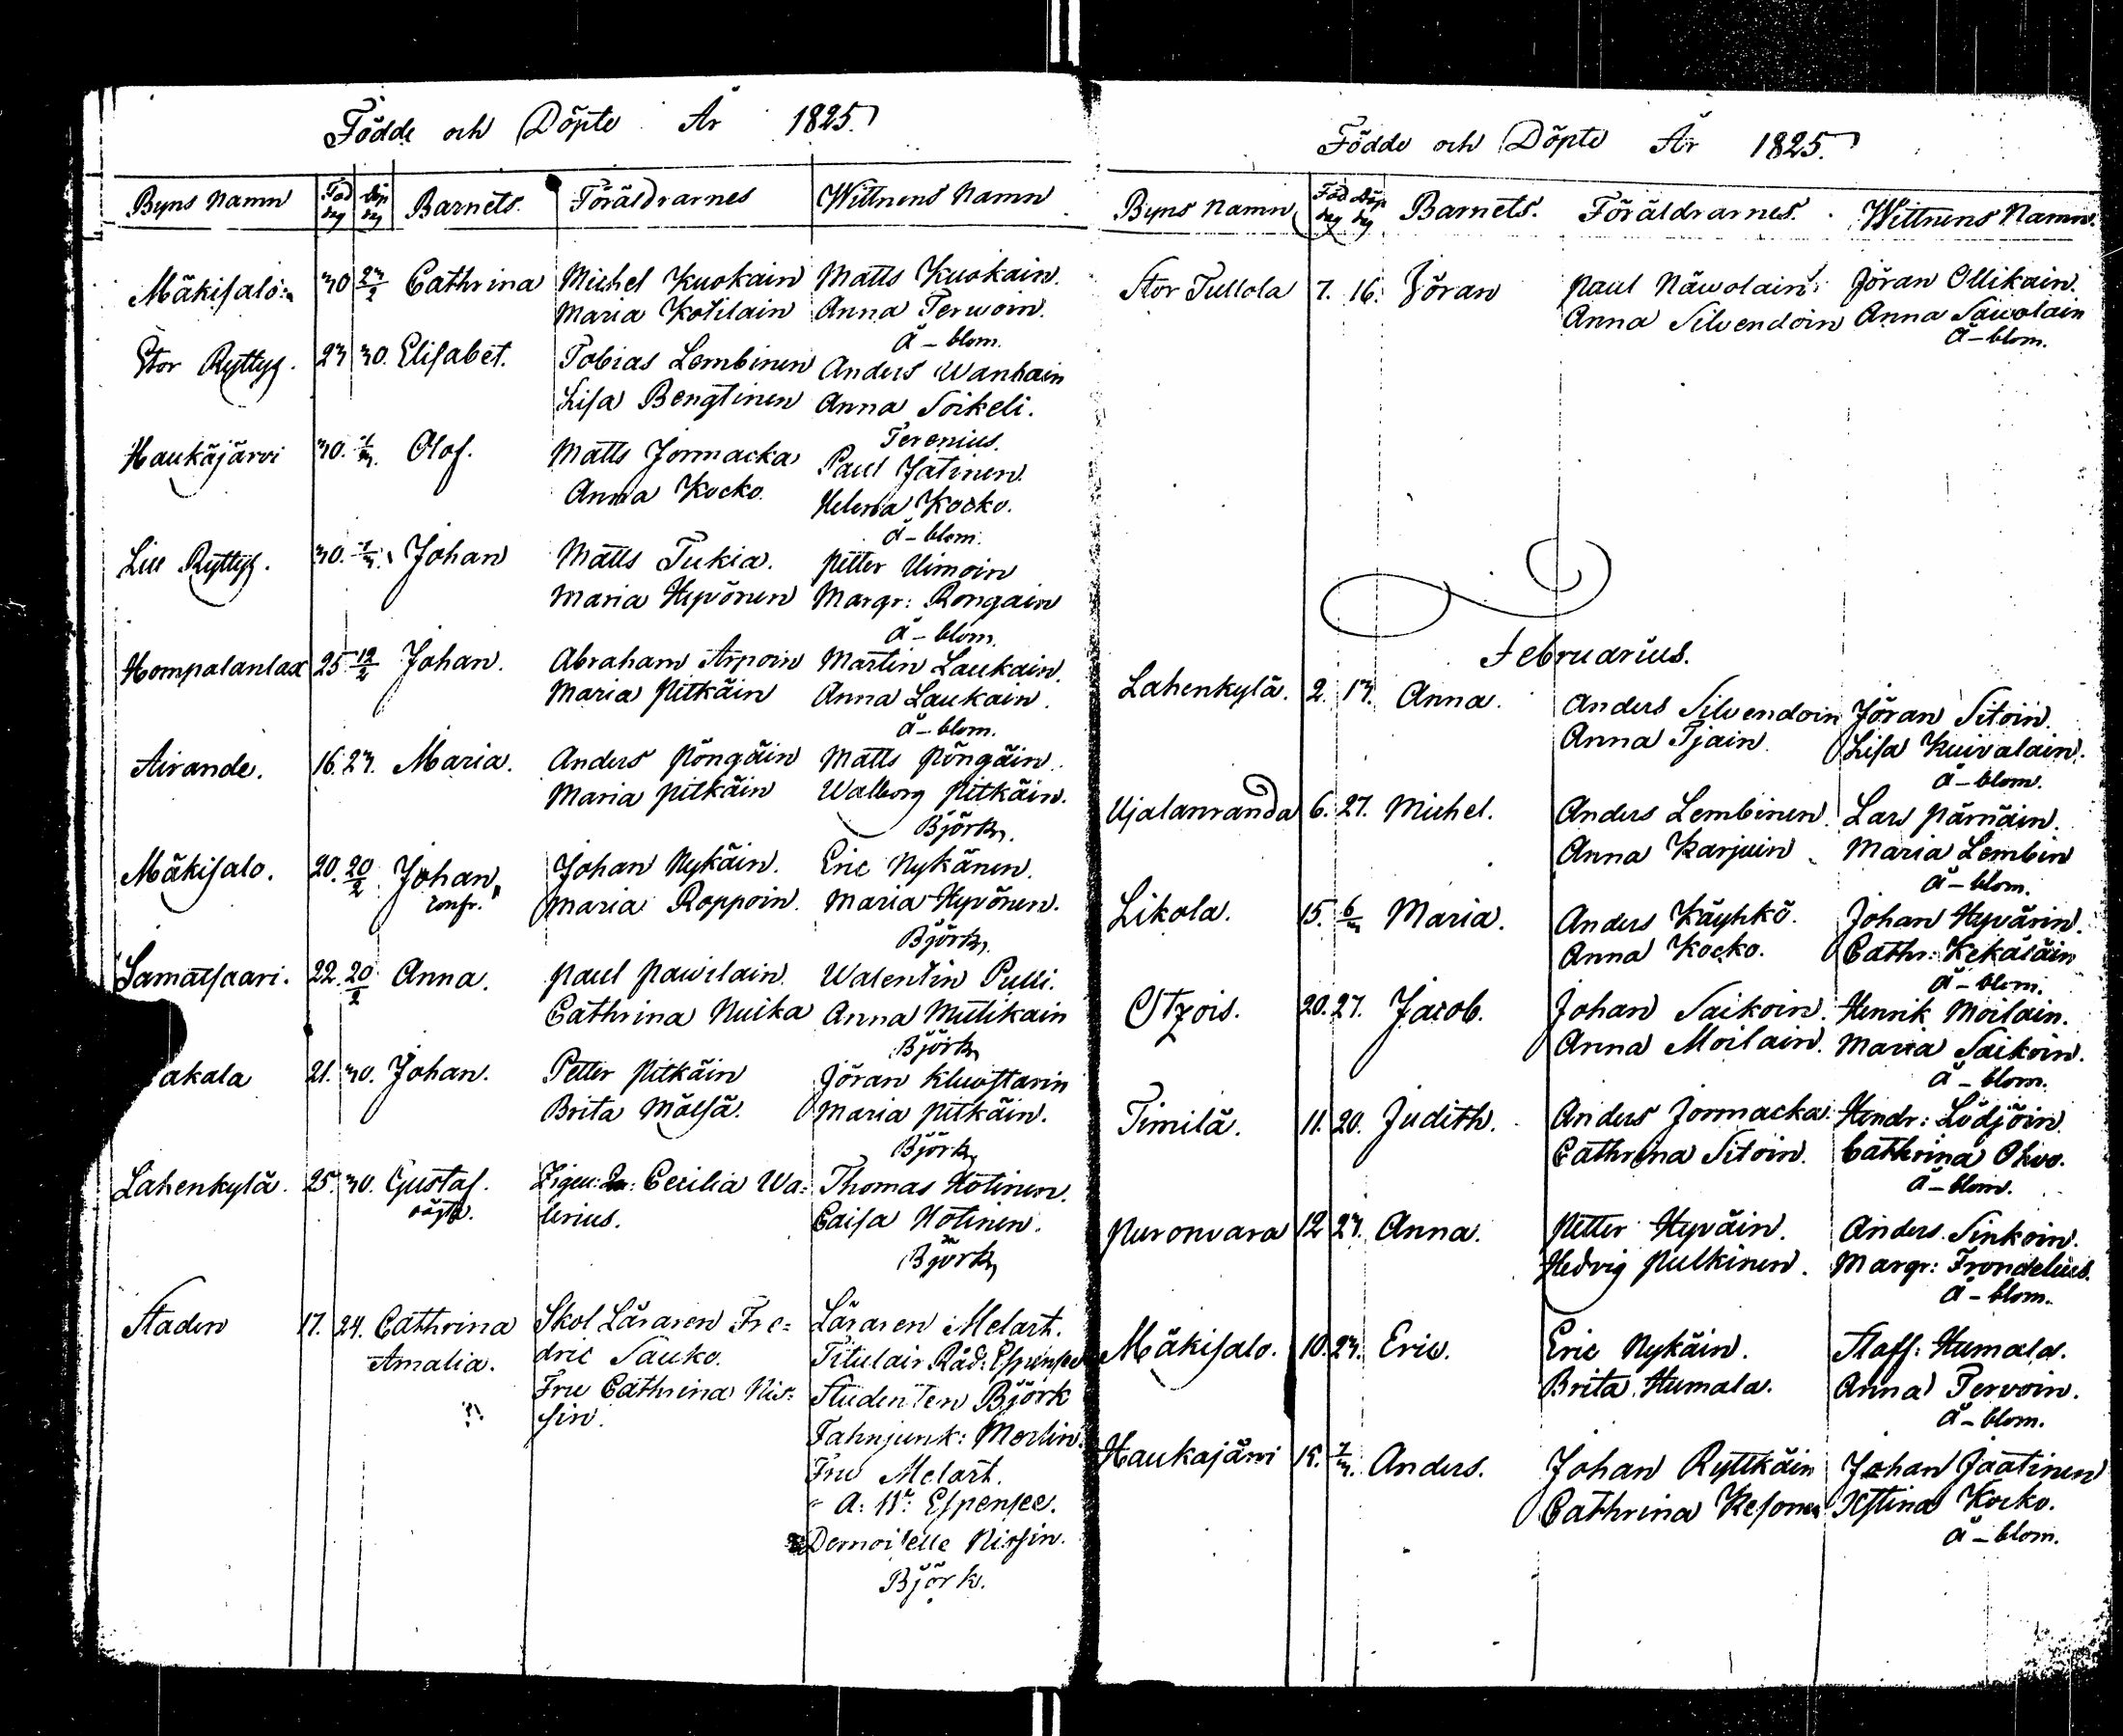 Födde och Döpte År 1825.
Byns Namn Föd dag Döp dag Barnets. Föräldrarnes Wittnens Namn
Mäkisalo 30 23/2 Cathrina Michel Kuokain Matts Kuokain.
Maria Kotilain Anna Terwoin.
ä-blom.
Stor Ryttyg. 23 30. Elisabet. Tobias Lembinen Anders Wanhain
Lisa Bengtinen Anna Soikeli.
Ferenius.
Haukäjärvi 30. 1/3. Olof. Matts Jormacka Paul Jatinen.
Anna Kocko. Helena Kocko.
ä-blom.
Lill Ryttyg. 30. 1/3. Johan Matts Tukia. Petter Uimoin
Maria Hyvönen Margr: Rongain
ä-blom.
Hompalanlax 25 12/2 Johan. Abraham Arpoin Martin Laukain.
Maria Pitkäin Anna Laukain.
ä-blom.
Airande. 16. 23. Maria. Anders Pöngäin Matts Pöngäin.
Maria Pitkäin Walborg Pitkäin.
Björk.
Mäkisalo. 20. 20/2 Johan Johan Nykäin. Eric Nykänen.
confr. Maria Roppoin. Maria Hyvönen.
Björk.
Samatsaari. 22. 20/2 Anna. Paul Pawilain Walentin Pulli.
Cathrina Nuika Anna Mielikain
Björk
akala 21. 30. Johan. Petter Pitkäin Jöran
Brita Mölsä. Maria Pitkäin.
Björk
Lahenkylä. 25. 30. Gustaf. Zigeu: Cecilia Wa= Thomas Hotinen.
oägta. lerius. Caisa Hotinen.
Björk
Staden 17. 24. Cathrina Skol Läraren Fre= Läraren Melart.
Amalia. dric Sauko. Titulair Råd: Espensee
Fru Cathrina Nis= Studenten Björk
sin. Fahnjunk: Morlin.
Fru Melart.
" A: Wr: Espensee.
Demoiselle Nissin.
Björk.
Födde och Döpte År 1825.
Byns Namn Föd dag Döp dag Barnets. Föräldrarnes. Wittnens Namn.
Stor Tullola 7. 16. Jöran Paul Näwolain Jöran Ollikain.
Anna Silvendoin Anna Sawolain
ä-blom.
Februarius.
Lahenkylä. 2. 13. Anna. Anders Silvendoin Jöran Sitoin.
Anna Tjain. Lisa Kuivalain.
ä-blom.
Ujalanranda 6. 27. Michel. Anders Lembinen. Lars Pärnäin.
Anna Karjuin Maria Lembin
ä-blom.
Likola. 15. 6/3 Maria. Anders Käyhkö. Johan Hyvärin.
Anna Kocko. Cathr: Kekäläin
ä-blom.
Otzois. 20. 27. Jacob. Johan Saikoin. Henrik Moilain.
Anna Moilain. Maria Saikoin.
ä-blom.
Timilä. 11. 20. Judith. Anders Jormacka. Hendr: Lödjöin.
Cathrina Sitoin. Cathrina Ohvo.
ä-blom.
Puronvara 12 27. Anna. Petter Hyväin. Anders Sinkoin.
Hedvig Pulkinen. Margr: Frondelius.
ä-blom.
Mäkisalo. 10. 27. Eric. Eric Nykäin. Staff: Humala.
Brita Humala. Anna Pervoin.
ä-blom.
Haukajärvi 15. 7/3. Anders. Johan Ryttkäin Johan Jaatinen
Cathrina Kesonen Kstina Kocko.
ä-blom.